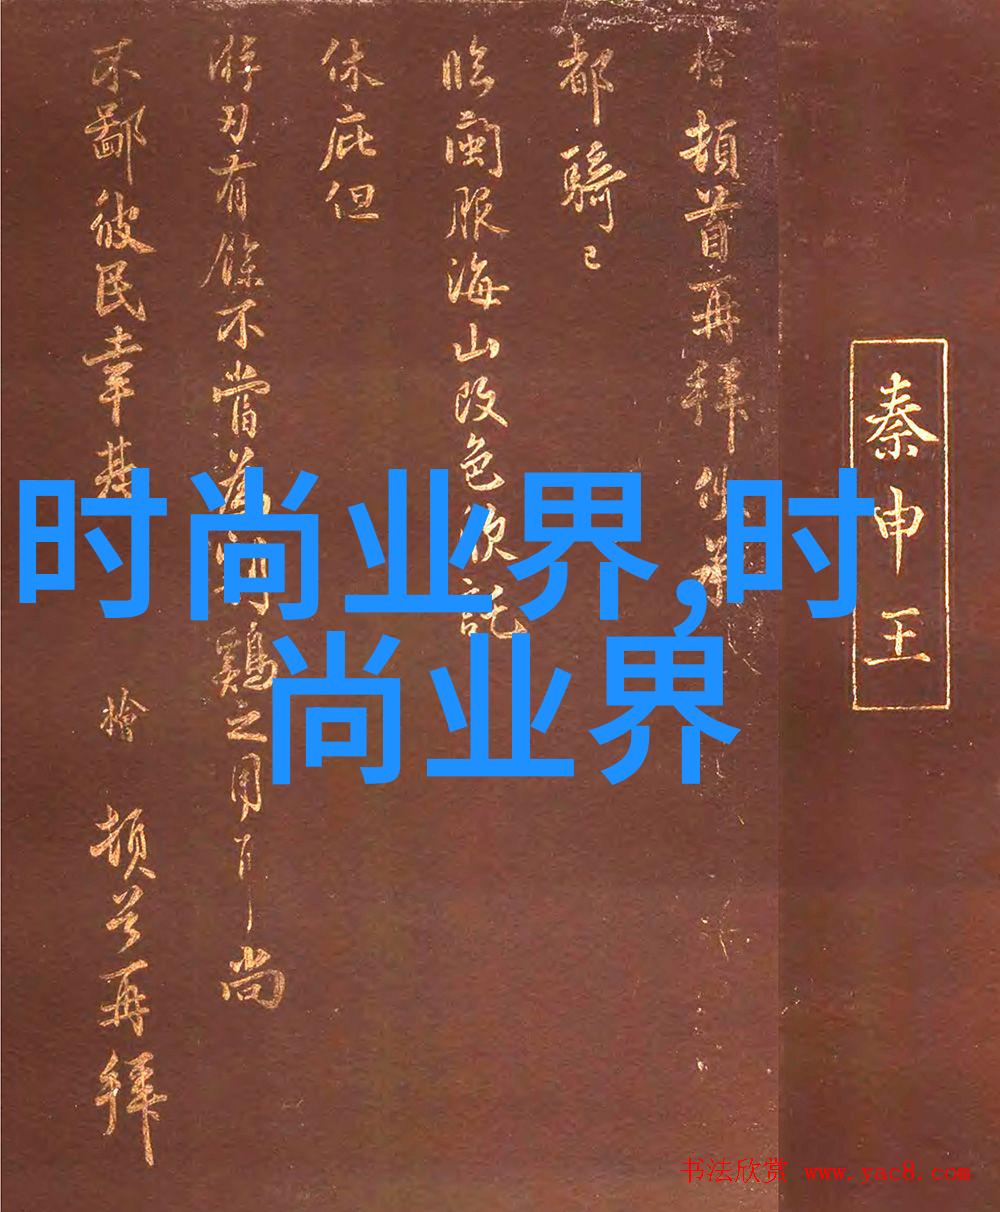 秦申王
檜頓首再拜
都騎已
臨閩服海山改色欲託
休庇但
游刃有餘不當為
雞之用下尚
不鄙彼民幸甚
檜
頓首再拜
时尚业界,时
尚业界
书法欣赏 www.yac8.com